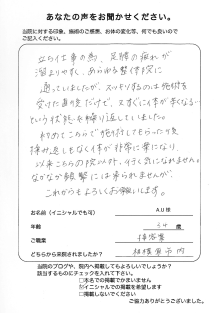 あなたの声をお聞かせください。
当院に対する印象、施術のご感想、お体の変化等、何でも良いので
ご記入ください。
立ち仕事の為、足腰の疲れが
溜まりやすく、あらゆる整体院に
通っていましたが、スッキリするのは施術を
受けた直後だけで、又すぐに体が重くなる…
という状態を繰り返していました。
初めてこちらで施術してもらった後
揉み返しもなく体が非常に楽になり、
以来こちらの院以外、行く気になれません。
なかなか頻繁には来られませんが、
これからもよろしくお願いします。
お名前(イニシャルでも可) A.U 様
年齢 34 歳
ご職業 接客業
どちらから来院されましたか? 相模原市内
当院のブログや、院内へ掲載してもよろしいでしょうか?
該当するものにチェックを入れて下さい。
□本名での掲載でかまいません
☑イニシャルでの掲載を希望します
□掲載しないでください
ご協力ありがとうございました。